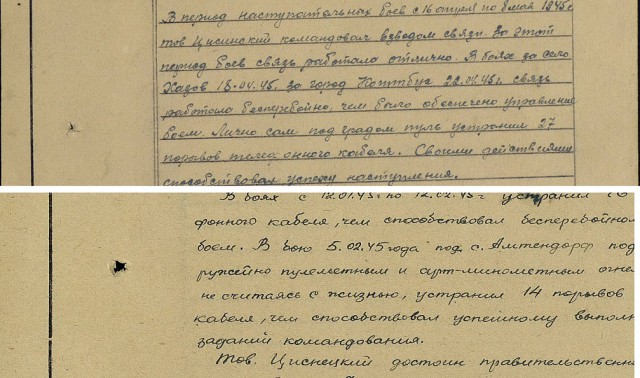 В период наступательных боев с 16 апреля по 8 мая 1945 г.
тов Цисинский командовал взводом связи. За этот
период боев связь работала отлично. В боях за село
18.04.45. за город Коттбус 22.04.45г. связь
работала бесперебойно, чем было обеспечено управление
боем. Лично сам под градом пуль устранил 27
порывов кабеля. Своими действиями
способствовал успеху наступления.
В боях с 12.01.45г. по 12.02.45г устранил 16
фонного кабеля, чем способствовал бесперебойном
боем. В бою 5.02.45 года под с. Амтендорф под
ружейно пулеметным и арт-минометным огне
не считаясь с жизнью, устранил 14 порывов
кабеля, чем способствовал успешному выполн
заданий командования.
Тов. Циснецкий достоин правительственн